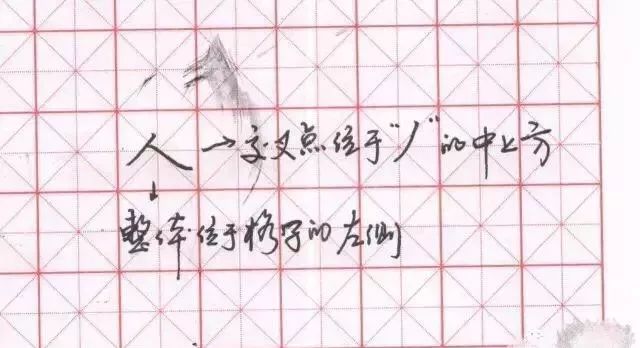 人→交叉点位于"丿"的中上方
↓
整体位于格子的左侧